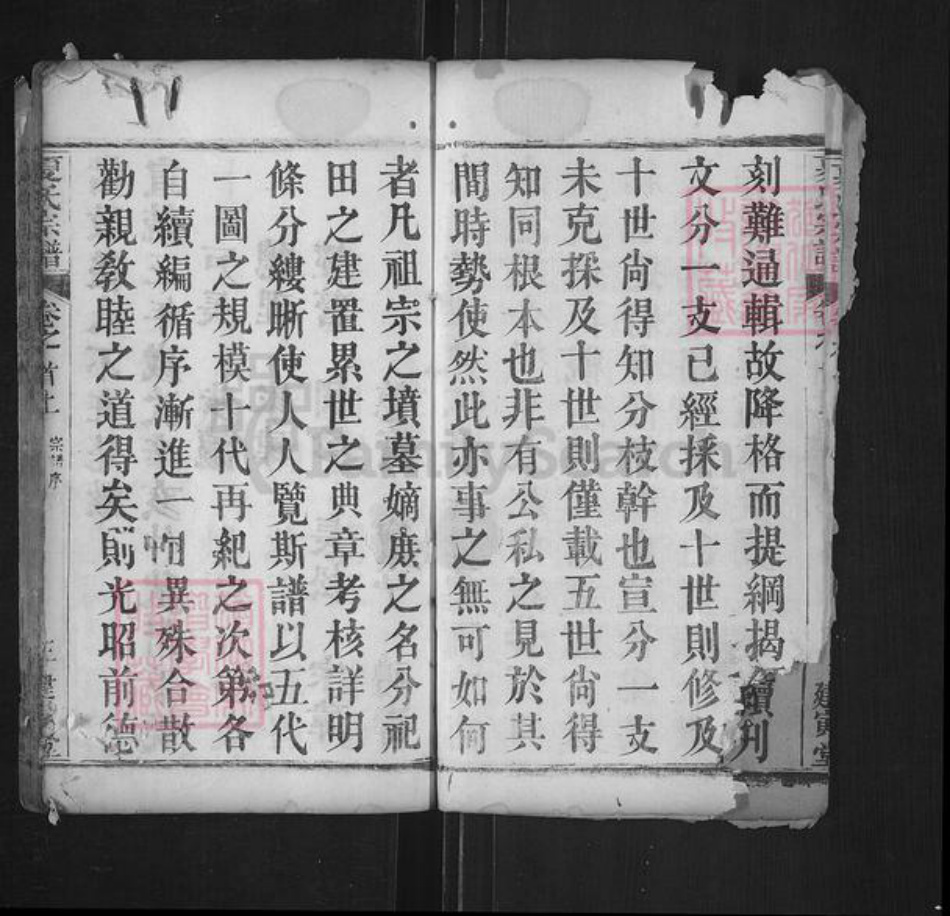 刻難逼輯故降格而提綱揭續刋
文分一支已經採及十世則修及
十世尙得知分枝幹也宣分一支
未克採及十世則僅載五世尙得
知同根本也非有公私之見於其
間時勢使然此亦事之無可如何
者凡祖宗之墳墓嫡庶之名分祀
田之建置累世之典章考核詳明
條分縷晰使人人覽斯譜以五代
一圖之規模十代再紀之次第各
自續編循序漸進一 異殊合散
勸親敎睦之道得矣則光昭前德
夏氏宗譜 卷之首上 宗譜序
建寅堂
FamilySearch